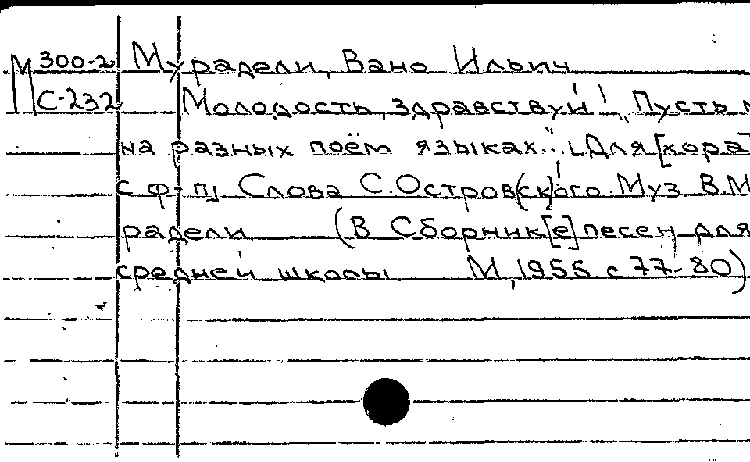 М 300-2 Мурадели, Вано Ильич
С-232 Молодость, здравствуй! „Пусть
на разных поём языках..." Для [хора]
с ф-п. Слова С. Островск[с]кого. Муз. В. М
радели (В Сборник[е] песен для
средней школы М, 1955 с 77-80)